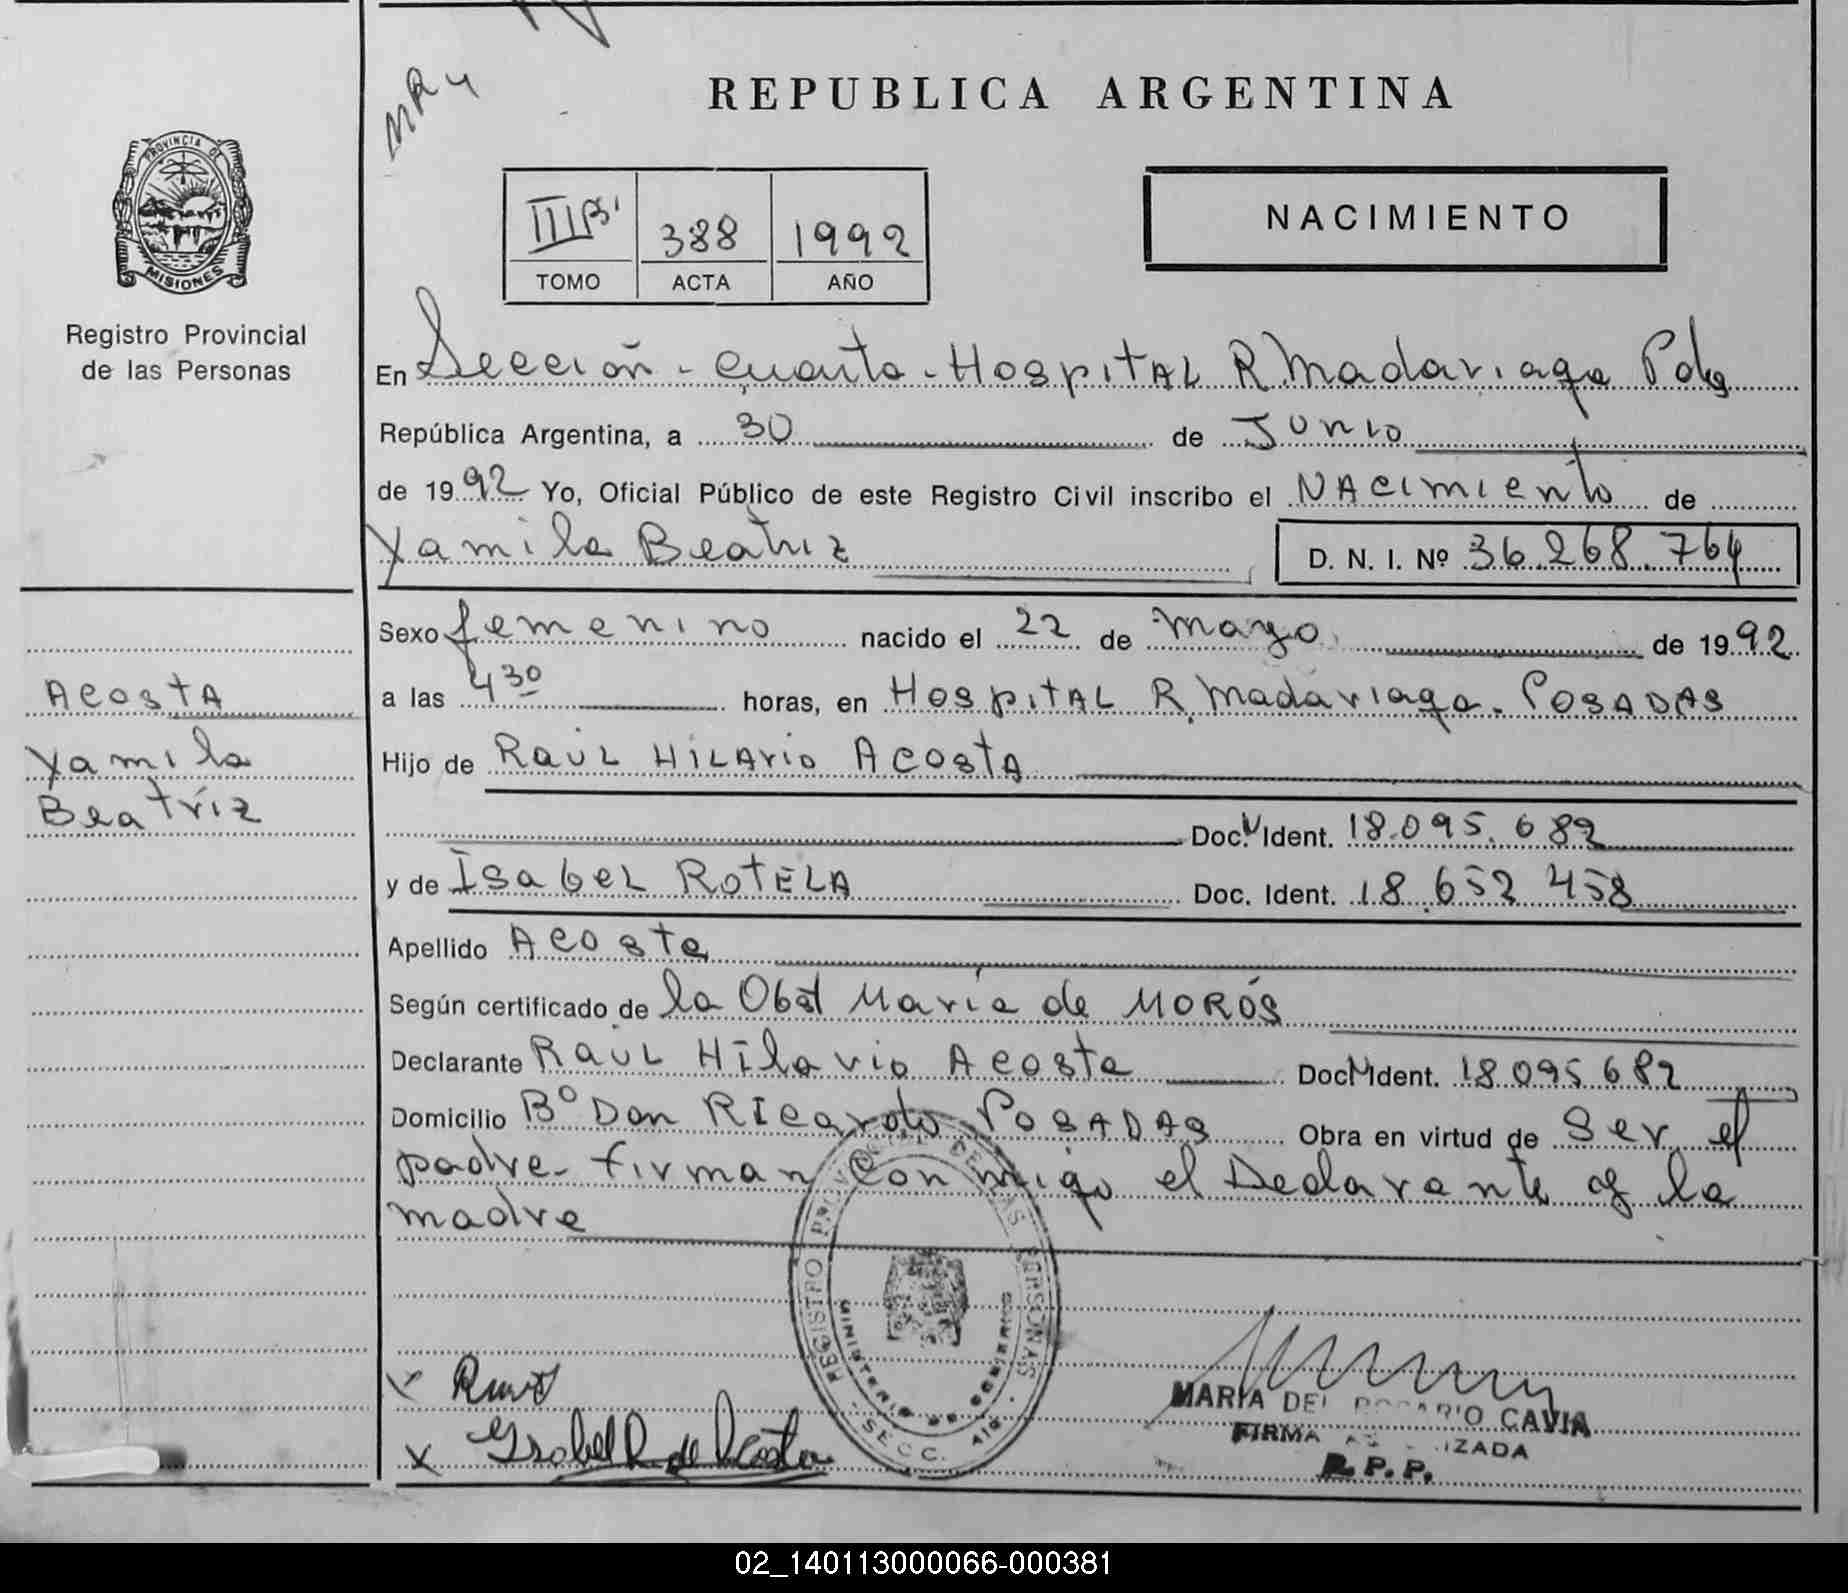 MR4
REPUBLICA ARGENTINA
PROVINCIA DE
MISIONES
Registro Provincial
de las Personas
III B' 388 1992
TOMO ACTA AÑO
NACIMIENTO
En Sección - Cuarta - Hospital R. Madariaga Pdas
República Argentina, a 30 de Junio
de 1992 Yo, Oficial Público de este Registro Civil inscribo el NAcimiento de
Yamila Beatriz D. N. I. Nº 36.268.764
Sexo femenino nacido el 22 de Mayo de 1992
a las 4 30 horas, en Hospital R. Madariaga - POSADAS
Hijo de Raúl Hilario Acosta
Doc. Ident. 18.095.682
y de Isabel Rotela Doc. Ident. 18.652.458
Apellido Acosta
Según certificado de la Obst María de MORÓS
Declarante Raúl Hilario Acosta Doc Ident. 18.095.682
Domicilio Bº Don Ricardo POSADAS Obra en virtud de Ser el
padre - firman Conmigo el Declarante y la
madre
Acosta
Yamila
Beatriz
REGISTRO PROVINCIAL DE LAS PERSONAS
MINISTERIO DE GOBIERNO
SECC. 4ta
X
X Isabel R de Acosta
MARIA DEL ROSARIO CAVIA
FIRMA AUTORIZADA
R.P.P.
02_140113000066-000381